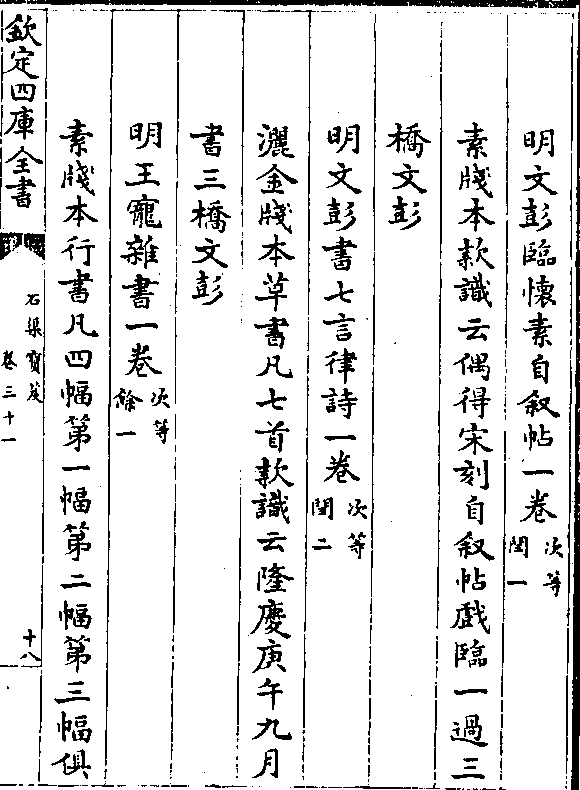 明文彭臨懷素自叙帖一卷次等閏一
素牋本款識云偶得宋刻自叙帖戲臨一過三
橋文彭
明文彭書七言律詩一卷次等閏二
灑金牋本草書凡七首款識云隆慶庚午九月
書三橋文彭
明王寵雜書一卷次等餘一
素牋本行書凡四幅第一幅第二幅第三幅俱
欽定四庫全書
石渠寶笈
卷三十一
十八